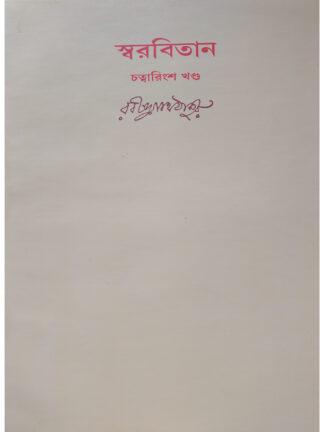 স্বরবিতান
চত্বারিংশ খণ্ড
রবীন্দ্রনাথ ঠাকুর